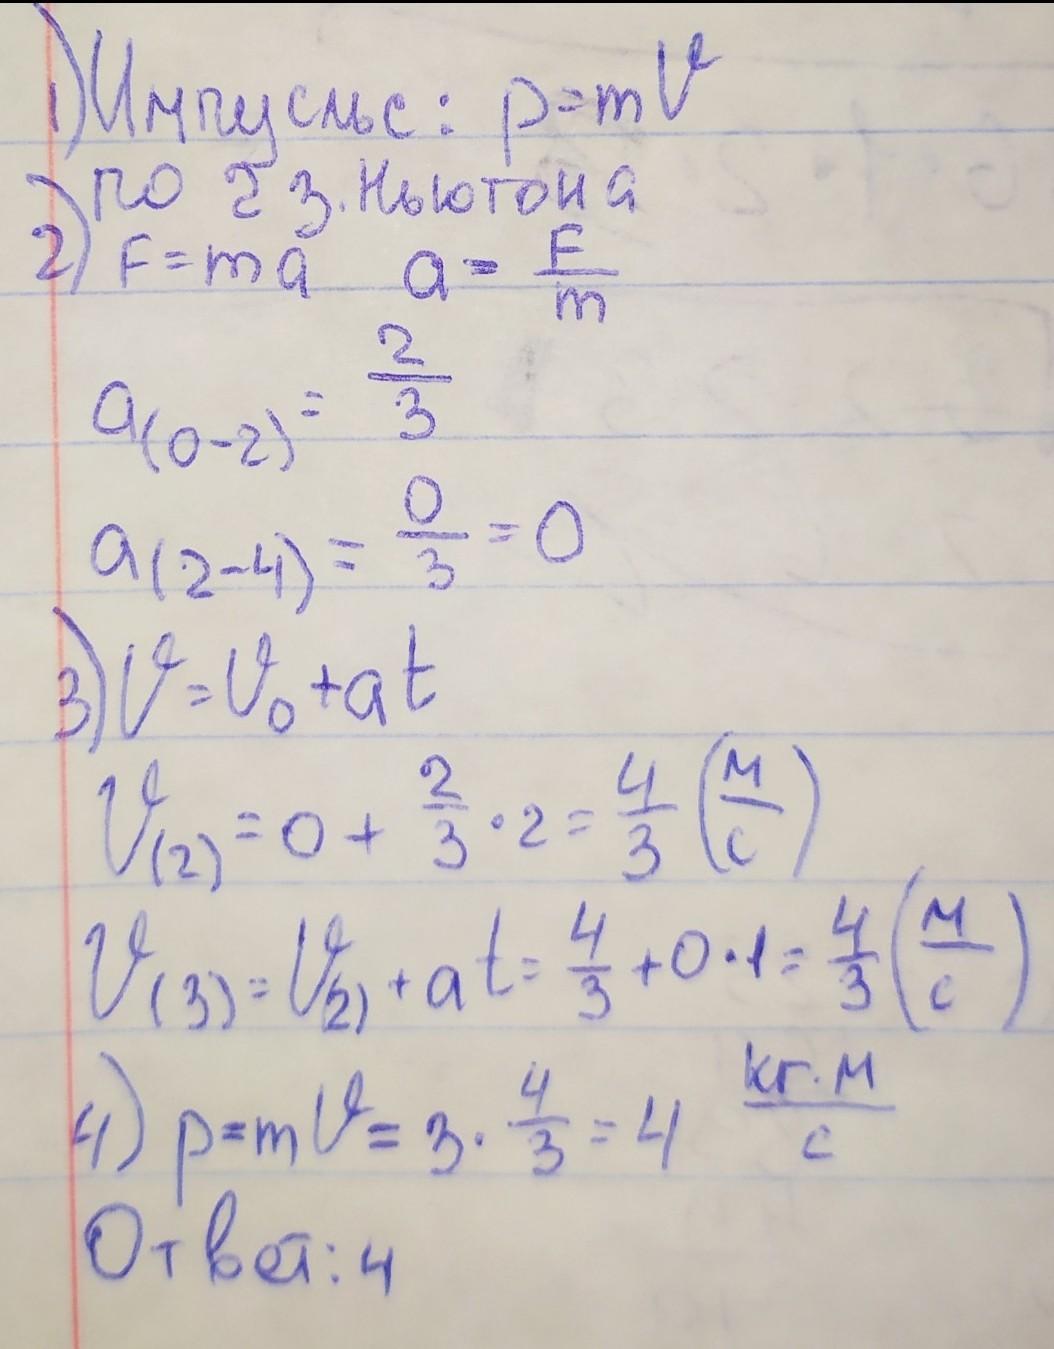 1) Импусльс: p=mV
по 2 з. Ньютона
2) F=ma a= F/m
a(0-2)= 2/3
a(2-4)= 0/3 =0
3) V=V0+at
V(2)=0+ 2/3 ·2= 4/3 (м/с)
V(3)=V2)+at= 4/3 +0·1= 4/3 (м/с)
4) p=mV=3· 4/3 =4 кг·м/с
Ответ: 4